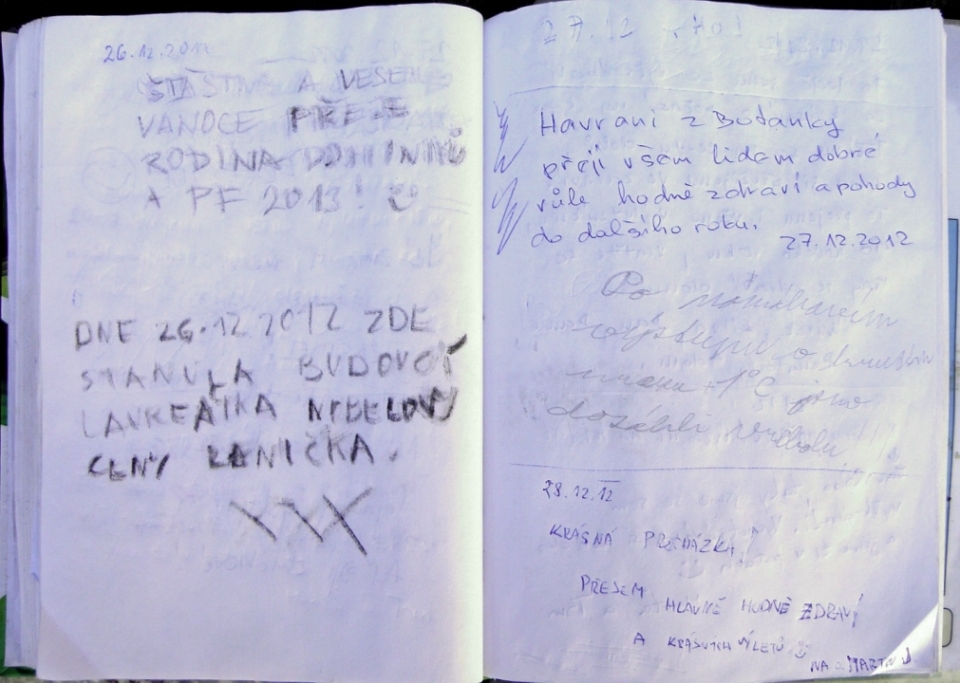 26.12.2012
ŠŤASTNÉ A VESELÉ
VANOCE PŘEJE
RODINA
A PF 2013!
DNE 26.12 2012 ZDE
STANULA BUDOUCÍ
LAUREÁTKA NOBELOVY
CENY LENIČKA.
XXX
27.12
Havrani z Botanky
přejí všem lidem dobré
vůle hodně zdraví a pohody
do dalšího roku.
27.12.2012
Po
výstupu o
-1°C jsme
dosáhli vrcholu!!!
28.12.12
KRÁSNÁ PROCHÁZKA,
PŘEJEM HLAVNĚ HODNĚ ZDRAVÍ
A KRÁSNÝCH VÝLETŮ